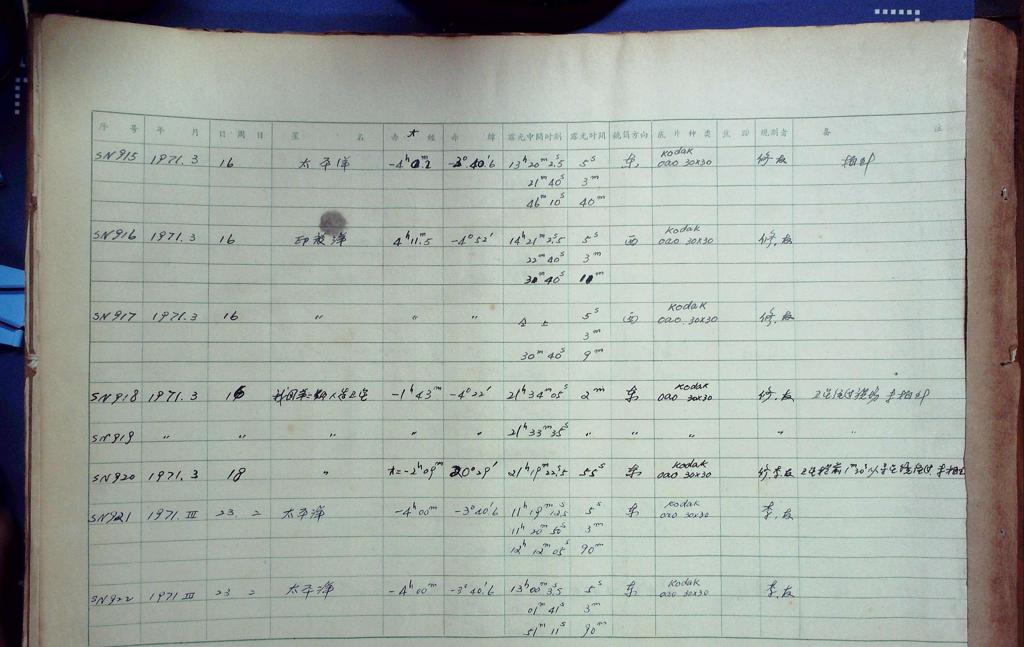 序号 年 月 日期 日 星 名 赤 t 经 赤 纬 露光中间时刻 露光时间 镜筒方向 底片种类 观测者 备 注
SN915 1971.3 16 太平洋 -4ʰ 0ᵐ.2 -3° 40.'6 13ʰ 20ᵐ 2ˢ.5 5ˢ 东 Kodak
0a0 30x30 修.友 拍印
21ᵐ 40ˢ 3ᵐ
46ᵐ 10ˢ 40ᵐ
SN916 1971.3 16 印度洋 4ʰ 11ᵐ.5 -4° 52' 14ʰ 21ᵐ 2ˢ.5 5ˢ 西 Kodak
0a0 30x30 修.友
22ᵐ 40ˢ 3ᵐ
30ᵐ 40ˢ 10ᵐ
SN917 1971.3 16 〃 〃 〃 5ˢ 西 Kodak
0a0 30x30 修.友
3ᵐ
30ᵐ 40ˢ 9ᵐ
SN918 1971.3 16 我国第一颗人造卫星 -1ʰ 43ᵐ -4° 22' 21ʰ 34ᵐ 05ˢ 2ᵐ 东 Kodak
0a0 30x30 修.友 未拍印
SN919 〃 〃 〃 〃 〃 21ʰ 33ᵐ 35ˢ 〃 〃 〃 〃 〃
SN920 1971.3 18 〃 t=-2ʰ 09ᵐ 20° 29' 21ʰ 19ᵐ 22ˢ.5 55ˢ 东 Kodak
0a0 30x30 修.李.友
SN921 1971.III 23 二 太平洋 -4ʰ 00ᵐ -3° 40.'6 11ʰ 19ᵐ 12ˢ.5 5ˢ 东 Kodak
0a0 30x30 李.友
11ʰ 20ᵐ 50ˢ 3ᵐ
12ʰ 12ᵐ 05ˢ 90ᵐ
SN922 1971 III 23 二 太平洋 -4ʰ 00ᵐ -3° 40.'6 13ʰ 00ᵐ 3ˢ.5 5ˢ 东 Kodak
0a0 30x30 李.友
01ᵐ 41ˢ 3ᵐ
51ᵐ 11ˢ 90ᵐ